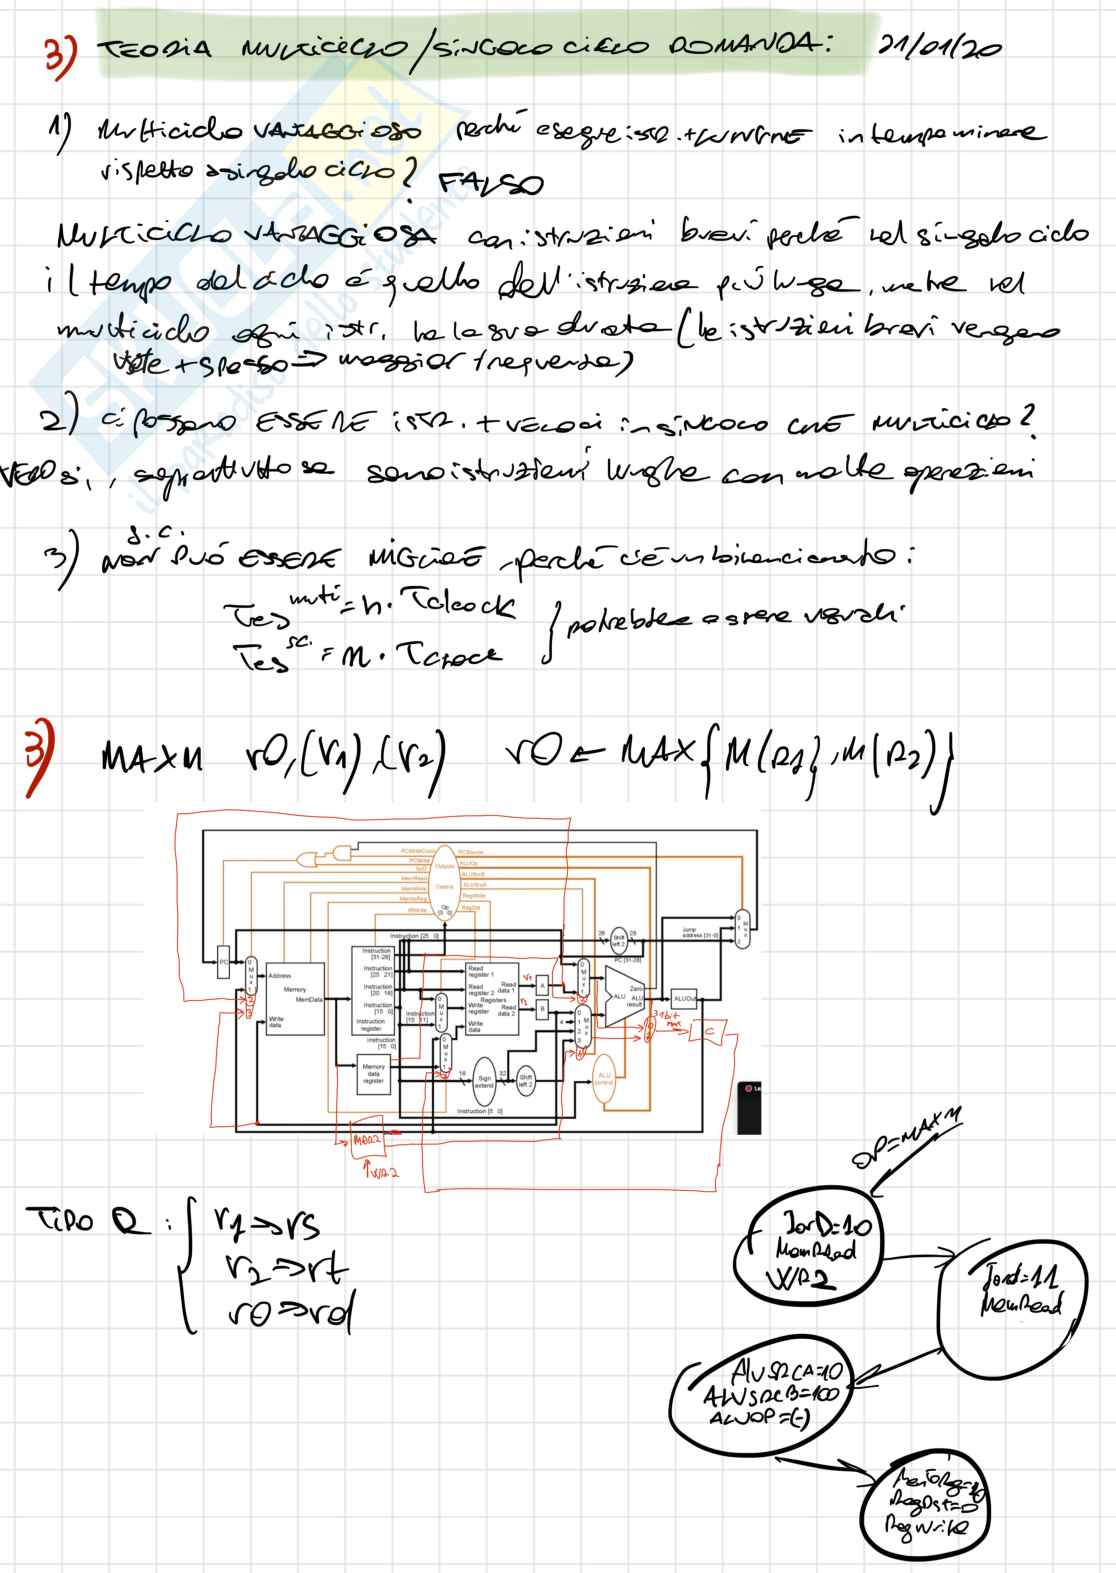 3) TEORIA MULTICICLO/SINGOLO CICLO DOMANDA: 21/01/20
1) Multiciclo VANTAGGIOSO perché esegue istr. + LUNGHE in tempo minore
rispetto a singolo ciclo? FALSO
MULTICICLO VANTAGGIOSA con istruzioni brevi perché nel singolo ciclo
il tempo del ciclo è quello dell'istruzione più lunga, mentre nel
multiciclo ogni istr. ha la sua durata (le istruzioni brevi vengono
usate + spesso => maggior frequenza)
2) ci possono ESSERE istr. + veloci in SINGOLO CHE MULTICICLO?
VERO si, soprattutto se sono istruzioni lunghe con molte operazioni
s.c.
3) NON PUÓ ESSERE MIGLIORE, perché c'è un bilanciamento:
Tes multi = n · Tclock
Tes sc. = m · Tclock } potrebbero essere uguali
3) MAXM r0,(r1),(r2) r0 ← MAX{M(R1),M(R2)}
PCWriteCond PCSource
PCWrite ALUOp
IorD Outputs ALUSrcB
MemRead ALUSrcA
MemWrite Control RegWrite
MemtoReg RegDst
IRWrite Op
[5 0]
Instruction [25 0] 26 Shift left 2 28 Jump address [31-0]
PC [31-28]
PC
0 M u x 1 2 3
Address
Memory
MemData
Write data
Instruction [31-26]
Instruction [25 21]
Instruction [20 16]
Instruction [15 0]
Instruction register
Instruction [15 11]
Instruction [15 0]
Memory data register
Read register 1
Read register 2
Registers
Write register
Write data
Read data 1
Read data 2
r1 A
r2 B
0 M u x 1
4
0 1 M u x 2 3
Zero
ALU ALU result
ALUOut
0 1 M u x 2
1 bit
C
16 Sign extend 32 Shift left 2
ALU control
Instruction [5 0]
MDR2
WR2
OP=MAXM
TIPO R: { r1 => rs
r2 => rt
r0 => rd
IorD=10
MemRead
WR2
Iord=11
MemRead
AluSRCA=10
ALUSRCB=100
ALUOP=(-)
MemToReg=10
RegDst=0
RegWrite